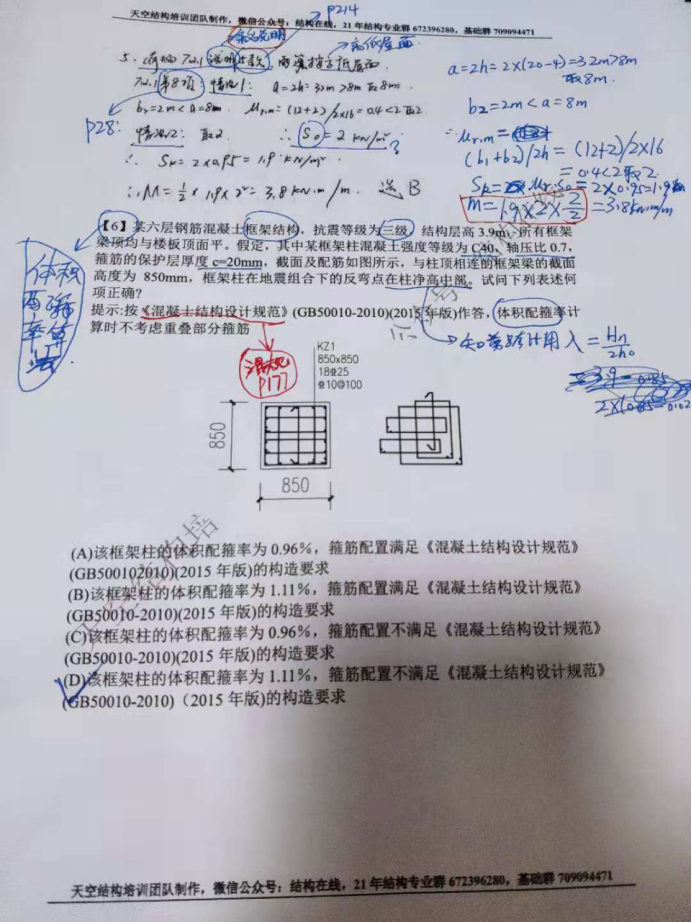 P214
天空结构培训团队制作，微信公众号：结构在线，21年结构专业群 672396280，基础群 709094471
条文说明
高低屋面
5. 荷规 7.2.1 说明5款，雨篷挡立低屋面.
7.2.1第8项: 情况1: a=2h=32m>8m 取8m.
b₂=2m<a=8m μr,m=(12+2)/2×16=0.4<2 取2
P28: 情况2: 取2 ∴ S₀=2 kN/m²
∴ Sk=2×0.95=1.9 kN/m².
∴M=½×1.9×2²=3.8kN·m/m. 选B
a=2h=2×(20-4)=32m>8m
取8m.
b2=2m<a=8m
μr,m=
(b1+b2)/2h=(12+2)/2×16
=0.4<2取2
Sk=μr·S0=2×0.95=1.9
m=1.9×2×2/2=3.8kN·m/m
【6】某六层钢筋混凝土框架结构，抗震等级为三级，结构层高 3.9m，所有框架
梁顶均与楼板顶面平。假定，其中某框架柱混凝土强度等级为 C40，轴压比 0.7，
箍筋的保护层厚度 c=20mm，截面及配筋如图所示，与柱顶相连的框架梁的截面
高度为 850mm，框架柱在地震组合下的反弯点在柱净高中部。试问下列表述何
项正确？
提示:按《混凝土结构设计规范》(GB50010-2010)(2015 年版)作答，体积配箍率计
算时不考虑重叠部分箍筋
体积
配箍
率算
法
混规
P177
λ=Hn/2h0
KZ1
850x850
18⌽25
⌽10@100
850
850
(A)该框架柱的体积配箍率为 0.96%，箍筋配置满足《混凝土结构设计规范》
(GB500102010)(2015 年版)的构造要求
(B)该框架柱的体积配箍率为 1.11%，箍筋配置满足《混凝土结构设计规范》
(GB50010-2010)(2015 年版)的构造要求
(C)该框架柱的体积配箍率为 0.96%，箍筋配置不满足《混凝土结构设计规范》
(GB50010-2010)(2015 年版)的构造要求
(D)该框架柱的体积配箍率为 1.11%，箍筋配置不满足《混凝土结构设计规范》
(GB50010-2010)（2015 年版)的构造要求
天空结构培训团队制作，微信公众号：结构在线，21年结构专业群 672396280，基础群 709094471